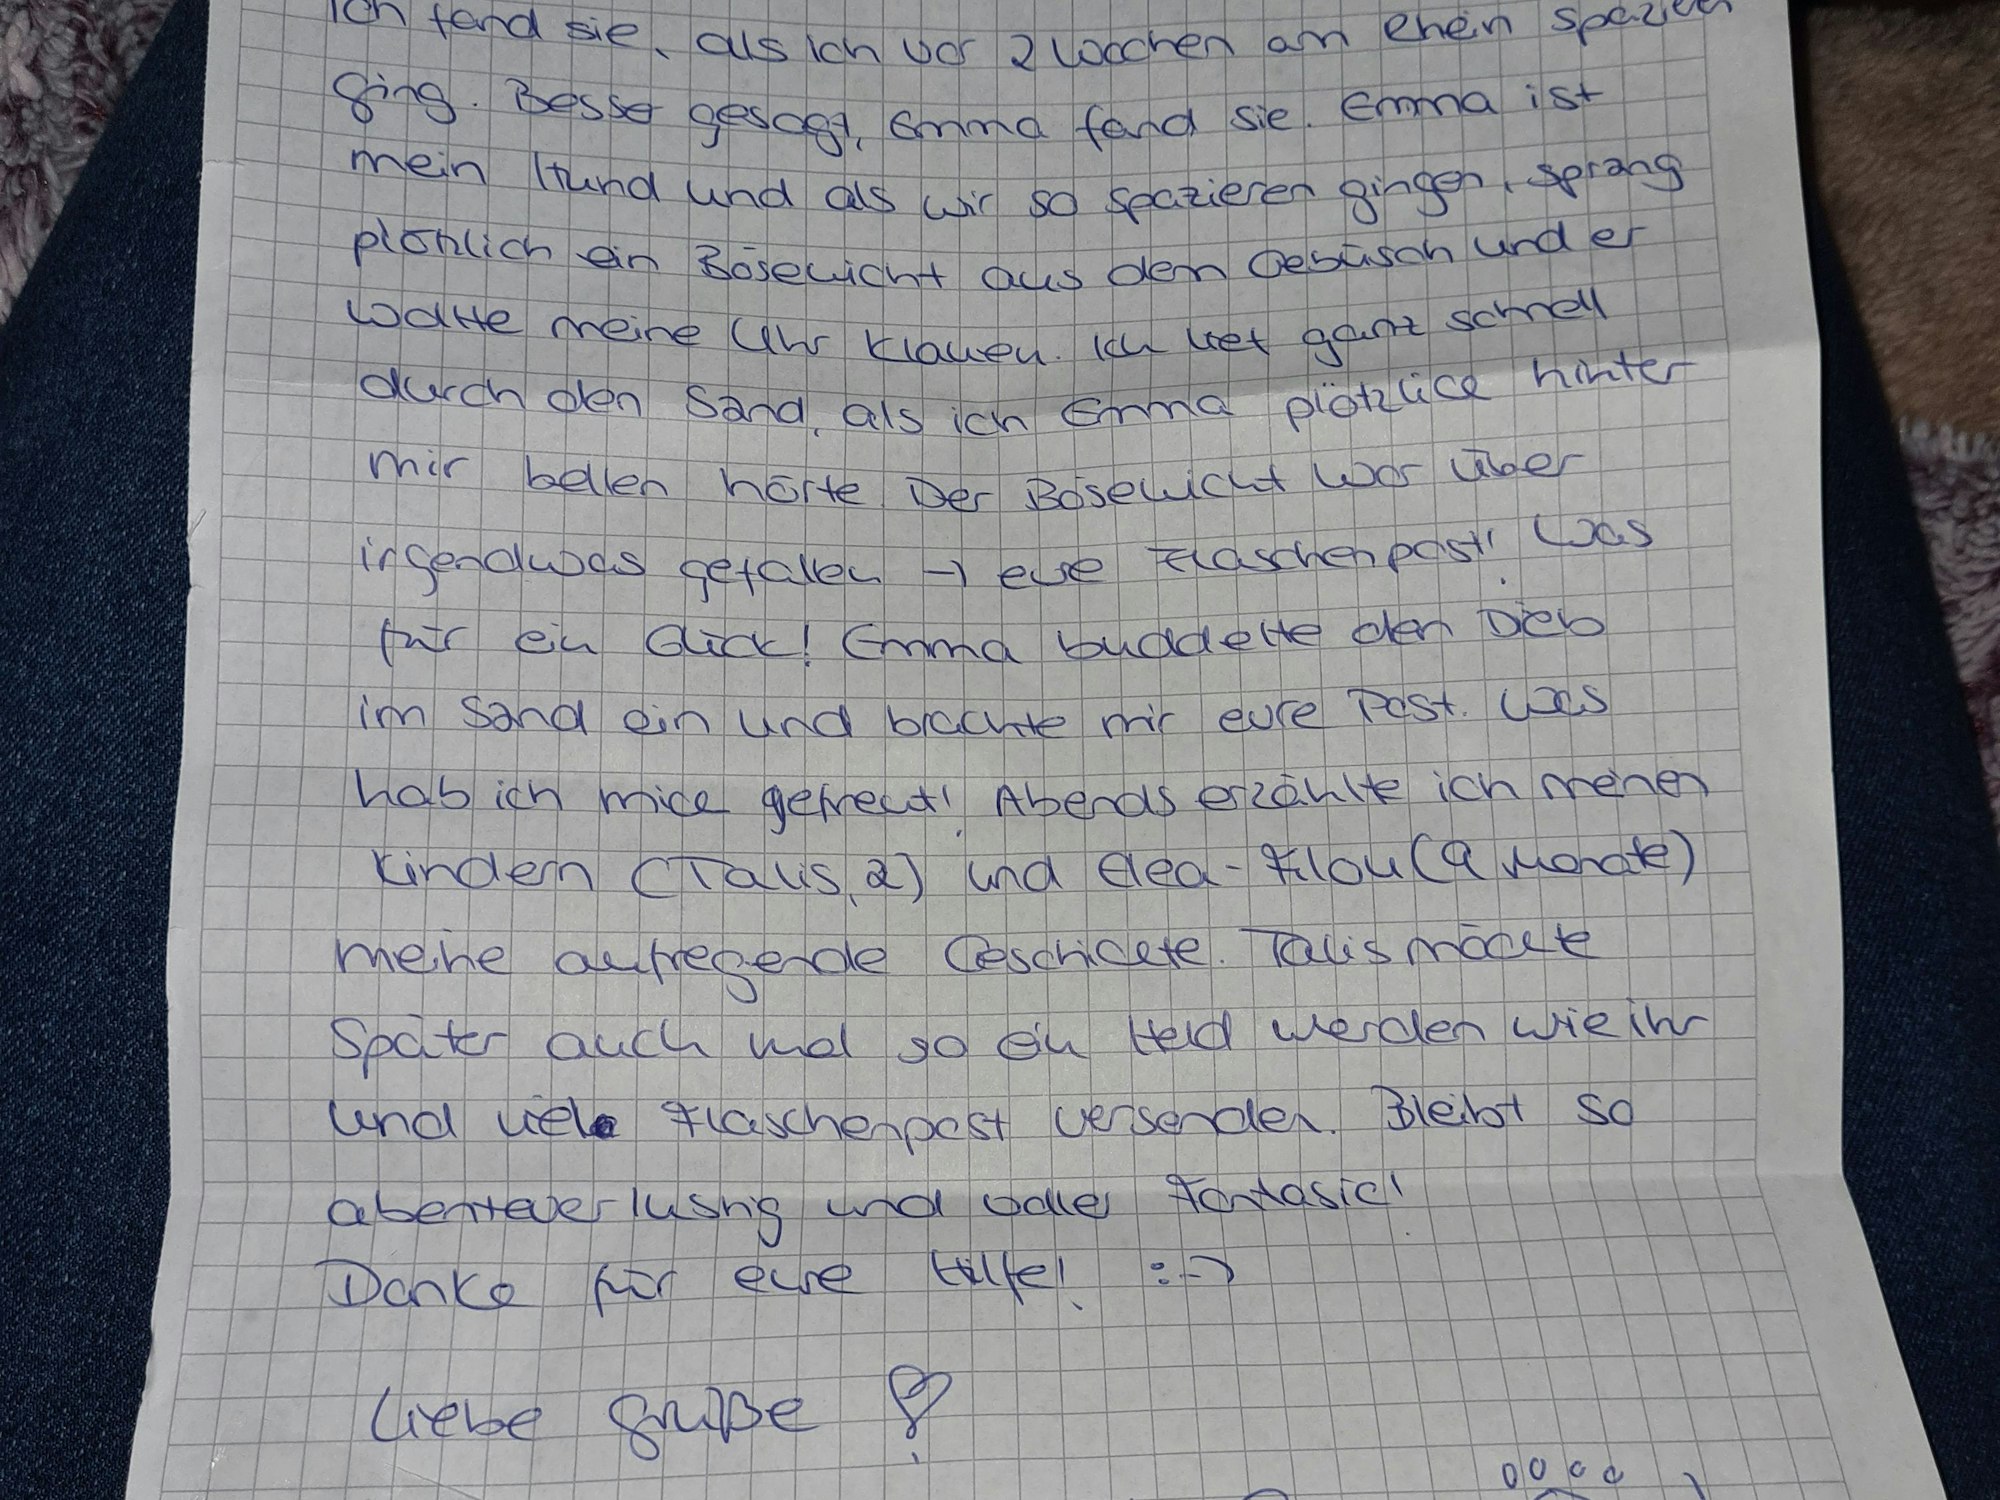 Ich fand sie, als ich vor 2 Wochen am Rhein spazieren
ging. Besser gesagt, Emma fand sie. Emma ist
mein Hund und als wir so spazieren gingen, sprang
plötzlich ein Bösewicht aus dem Gebüsch und er
wollte meine Uhr klauen. Ich lief ganz schnell
durch den Sand, als ich Emma plötzlich hinter
mir bellen hörte. Der Bösewicht war über
irgendwas gefallen → eure Flaschenpost! Was
für ein Glück! Emma buddelte den Dieb
im Sand ein und brachte mir eure Post. Was
hab ich mich gefreut! Abends erzählte ich meinen
Kindern (Talis, 2) und Elea-Filou (9 Monate)
meine aufregende Geschichte. Talis möchte
später auch mal so ein Held werden wie ihr
und viele Flaschenpost versenden. Bleibt so
abenteuerlustig und voller Fantasie!
Danke für eure Hilfe! :-)
Liebe Grüße